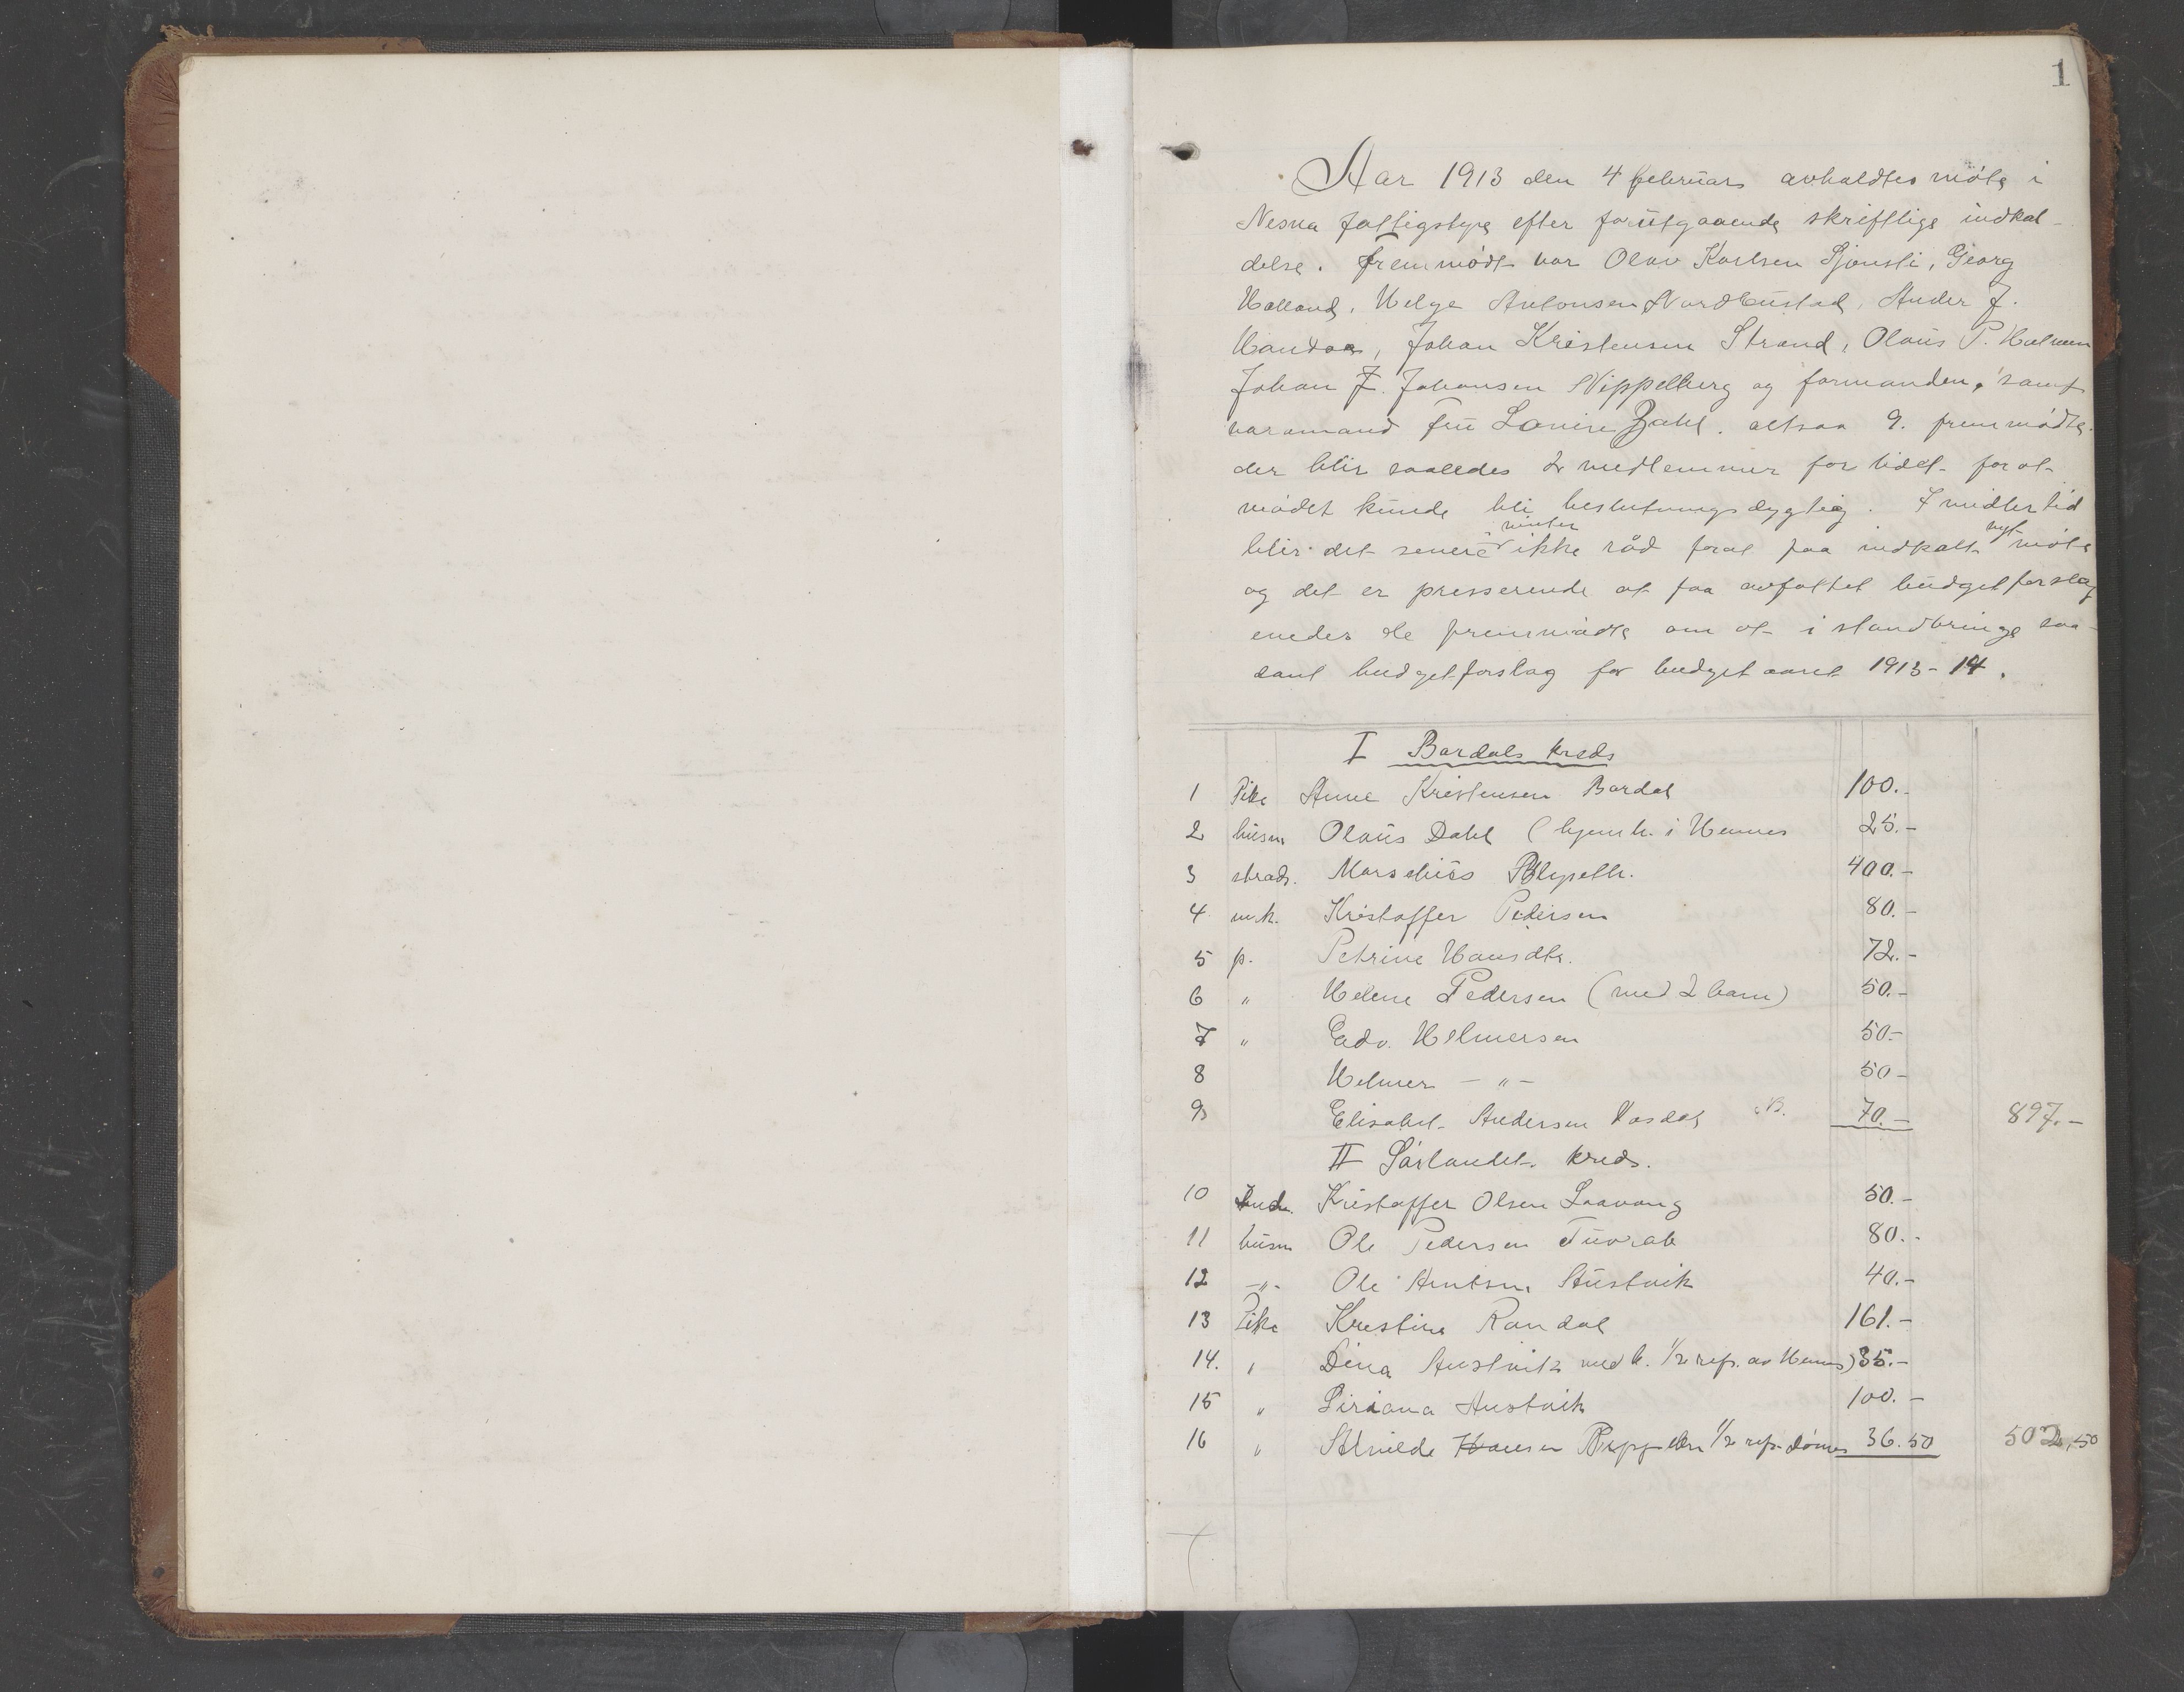 1
Aar 1913 den 4 februar avholdtes møte i
Nesna fattigstyre efter forutgaaende skriftlige indkal-
delse. Fremmødt var Olav Karlsen Sjonsli, Georg
Halland, Helge Antonsen Nordbustad, Ander J.
Handaa, Johan Kristensen Strand, Olaus P. Holmen
Johan J. Johansen Nippelberg og formanden, samt
varamand fru Lovise Zahl. altsaa 9. fremmødte.
der blir saaledes 2 medlemmer for lidet for at
mødet kunde bli beslutningsdygtig. Imidlertid
blir det senere vinter ikke råd forat faa indkalt nyt møte
og det er presserende at faa avfattet budgetforslag
enedes de fremmødte om at i standbringe saa-
dant budgetforslag for budgetaaret 1913-14.
I Bardals kreds
1 Pike Anne Kristensen Bardal 100.-
2 husm Olaus Dahl (hjemh. i Hemnes 25.-
3 strads. Marselius 400.-
4 Kristoffer Pedersen 80.-
5 p. Petrine Hansdtr. 72.-
6 " Helene Pedersen (med 2 barn) 50.-
7 " Edv. Helmersen 50-
8 Helmer - " - 50-
9 Elisabet Andersen 70.- 897.-
II Sørlandet kreds.
10 Kristoffer Olsen Laavong 50.-
11 husm Ole Pedersen 80.-
12 -"- Ole Arntsen Hustvik 40.-
13 Pike Kristine Randal 161.-
14. " Dina Hustvik med b. 1/2 ref. av Hemnes) 35.-
15 " Siriana Hustvik 100.-
16 " Alvilde Hansen 1/2 ref. Dønnes 36.50 502,50